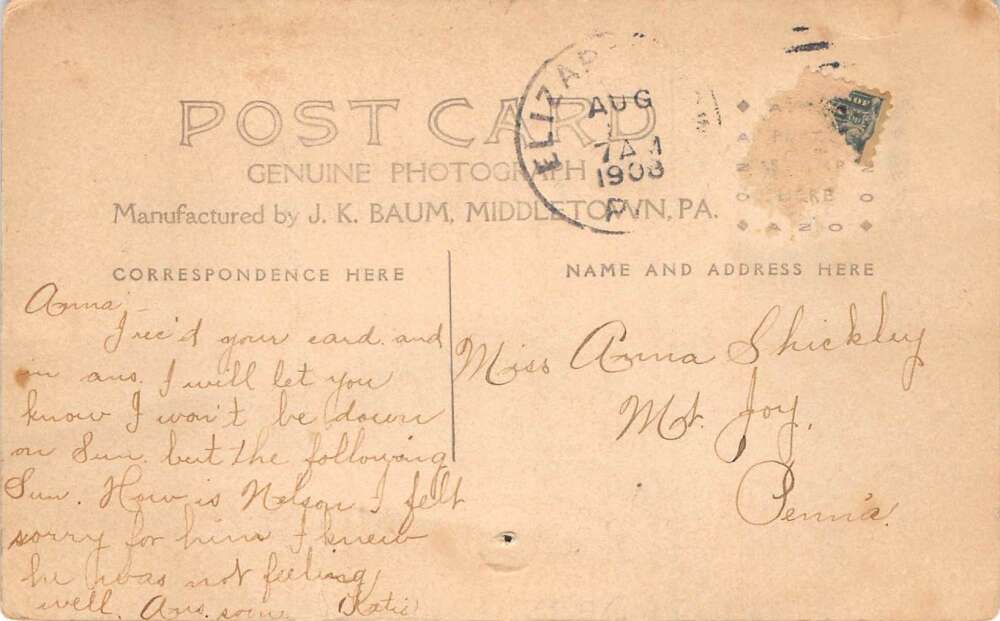 POST CARD
GENUINE PHOTOGRAPH
Manufactured by J. K. BAUM, MIDDLETOWN, PA.
AUG
7 AM
1908
PA.
AZO
CORRESPONDENCE HERE
NAME AND ADDRESS HERE
Anna,
I rec'd your card and
in ans. I will let you
know I won't be down
on Sun. but the following
Sun. How is Nelson I felt
sorry for him I knew
he was not feeling
well. Ans. soon Katie
Miss Anna Shickley
Mt. Joy,
Penn'a.